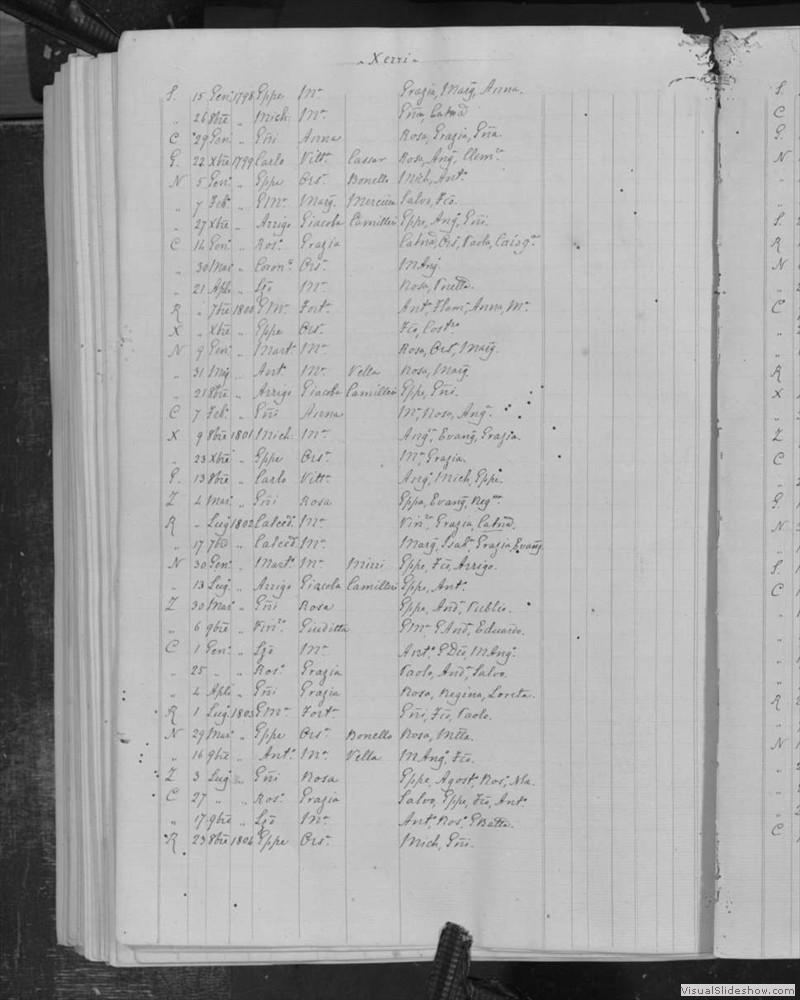 Xerri
S. 15 Gen: 1798 Gppe Mª Grazia, Marg, Anna.
„ 26 8bre „ Mich: Mª Gña, Catnã
C 29 Gen: „ Gñi Anna Rosa, Grazia, Gña.
G. 22 Xbre 1799 Carlo Vittª Cassar Rosa, Angª, Clemª
N 5 Gen: „ Gppe Orsª Bonello Mich, Antº
„ 7 Febº „ GMª Margª Mercieca Salvo, Fcõ.
„ 27 Xbre „ Arrigo Giacoba Camilleri Gppe, Angº, Gñi.
C 14 Gen: „ Rosº Grazia Catnã, Orsª, Paolo,
„ 30 Mar „ Coronº Orsª MAngª
„ 21 Aple „ Lzo Mª Rosa,
R „ 7bre 1800 GMª Fortª Antº, Flamª, Anna, Mª
X „ Xbre „ Gppe Orsª Fcõ, Costª
N 9 Gen: „ Martº Mª Rosa, Orsª, Marg.
„ 31 Mag „ Antº Mª Vella Rosa, Marg.
„ 21 8bre „ Arrigo Giacoba Camilleri Gppe, Gñi.
C 7 Febº „ Gñi Anna Mª, Rosa, Angª
X 9 8bre 1801 Mich: Mª Angª, Evang, Grazia.
„ 23 Xbre „ Gppe Orsª Mª, Grazia.
G. 13 8bre „ Carlo Vittª Angº, Mich, Gppe.
Z 4 Mar: „ Gñi Rosa Gppa, Evang,
R „ Lug 1802 Calcedº Mª Vinª, Grazia, Catnã.
„ 17 7bre „ Calcedº Mª Marg, Isabª, Grazia, Evang
N 30 Gen: „ Martº Mª Mizzi Gppe, Fcõ, Arrigo.
„ 13 Lug. „ Arrigo Giacoba Camilleri Gppe, Antº
Z 30 Mar: „ Gñi Rosa Gppa, Andª, Publio.
„ 6 9bre „ Vinzº Giuditta GMª, GAndª, Eduardo.
C 1 Gen: „ Lzo Mª Antº, GDcõ, MAngª
„ 25 „ „ Rosº Grazia Paolo, Andª, Salvo.
„ 4 Aple „ Gñi Grazia Rosa, Regina, Loreta.
R 1 Lug. 1803 GMª Fortª Gñi, Fcõ, Paolo.
N 29 Mar: „ Gppe Orsª Bonello Rosa,
„ 16 9bre „ Antº Mª Vella MAngª, Fcã.
Z 3 Lug „ Gñi Rosa Gppe, Agostº, Rosº,
C 27 „ „ Rosº Grazia Salvo, Gppe, Fcõ, Antº
„ 17 9bre „ Lzo Mª Antº, Rosº, GBatta.
R 23 8bre 1804 Gppe Orsª Mich, Gñi.
VisualSlideshow.com